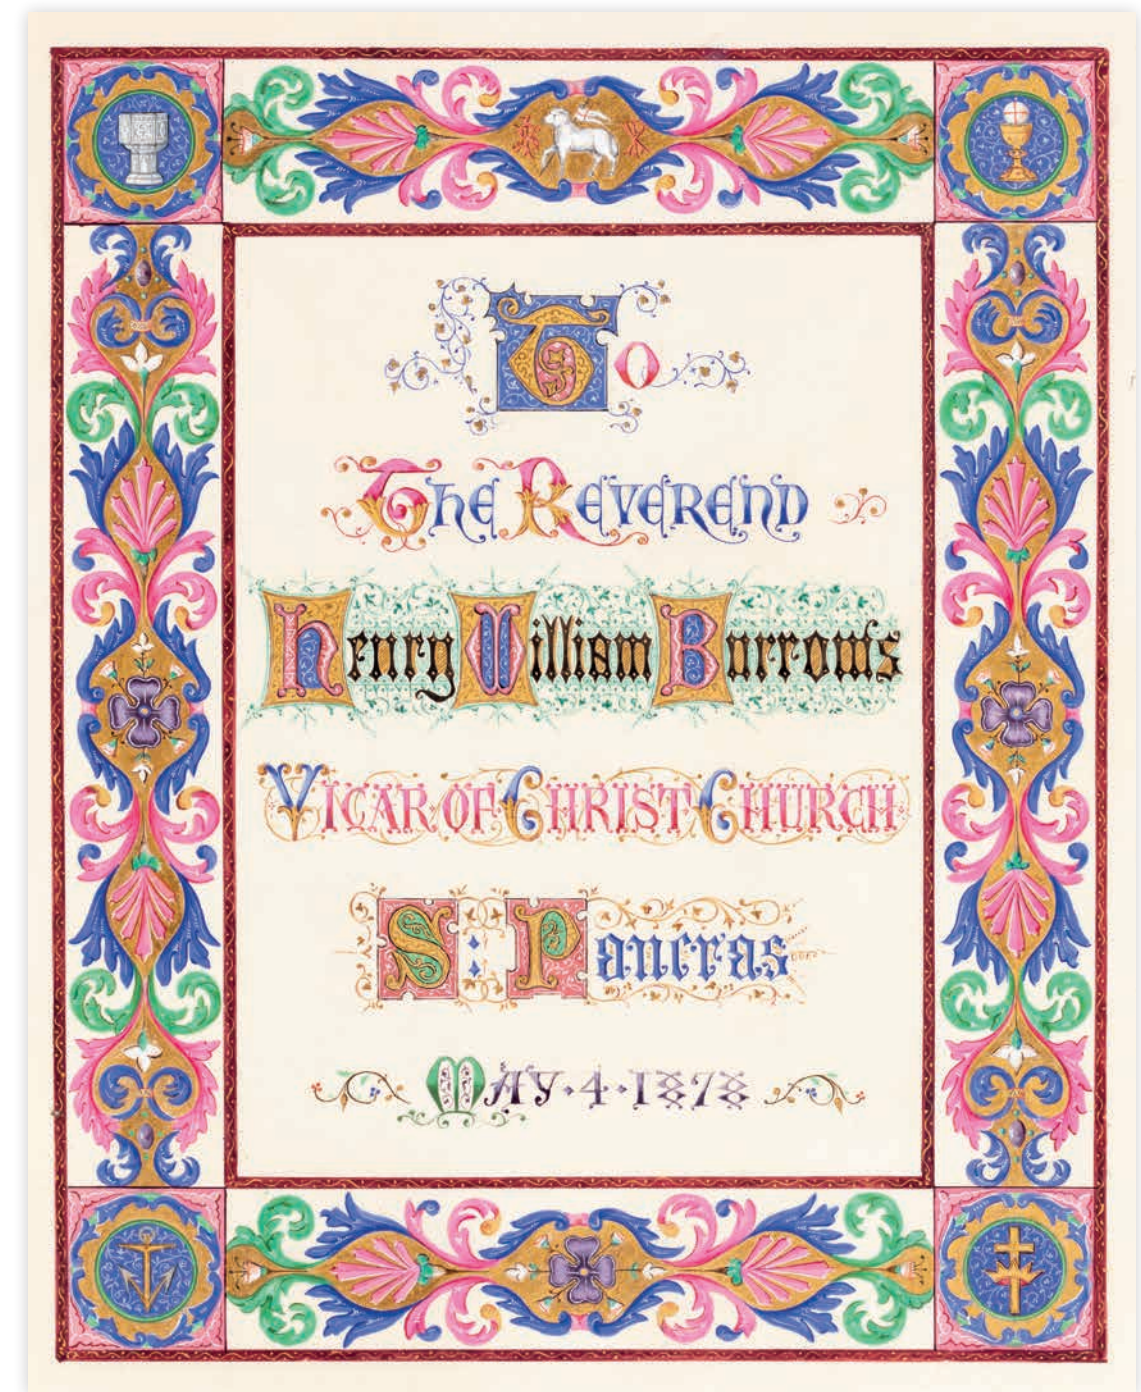 To
The Reverend
Henry William Burrows
Vicar of Christ Church
S: Pancras
May·4·1878